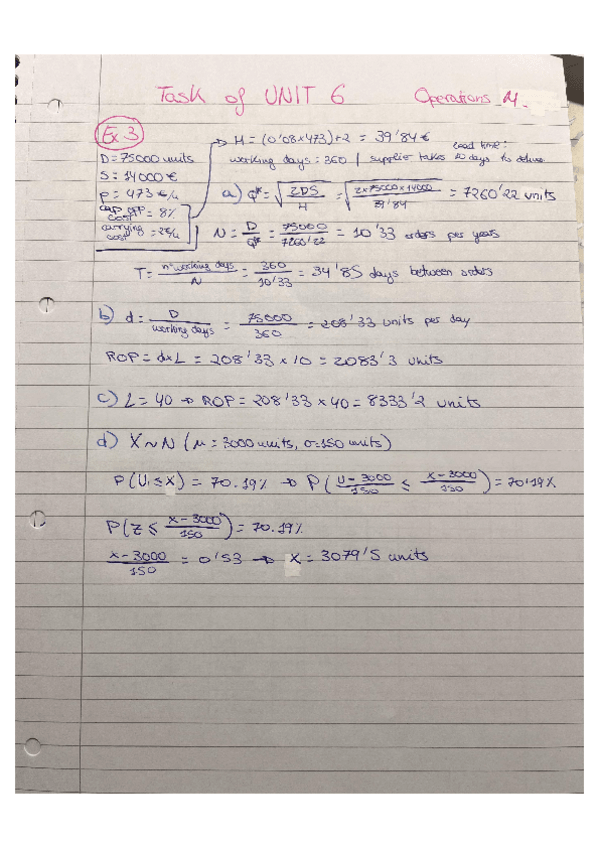 Task of UNIT 6 Operations M.
Ex.3
H = (0'08 x 473) + 2 = 39'84 €
Lead time:
D = 75000 units working days = 360 | supplier takes 10 days to deliver
S = 14000 €
p = 473 €/u a) Q* = √(2DS / H) = √(2 x 75000 x 14000 / 39'84) = 7260'22 units
cap opp cost = 8%
carrying cost = 2€/u N = D / Q* = 75000 / 7260'22 = 10'33 orders per years
T = nº working days / N = 360 / 10'33 = 34'85 days between orders
b) d = D / working days = 75000 / 360 = 208'33 units per day
ROP = d x L = 208'33 x 10 = 2083'3 units
c) L = 40 → ROP = 208'33 x 40 = 8333'2 units
d) X ~ N (μ = 3000 units, σ = 150 units)
P(U ≤ X) = 70.19% → P( U - 3000 / 150 ≤ X - 3000 / 150 ) = 70'19%
P(Z ≤ X - 3000 / 150) = 70.19%
X - 3000 / 150 = 0'53 → X = 3079'5 units